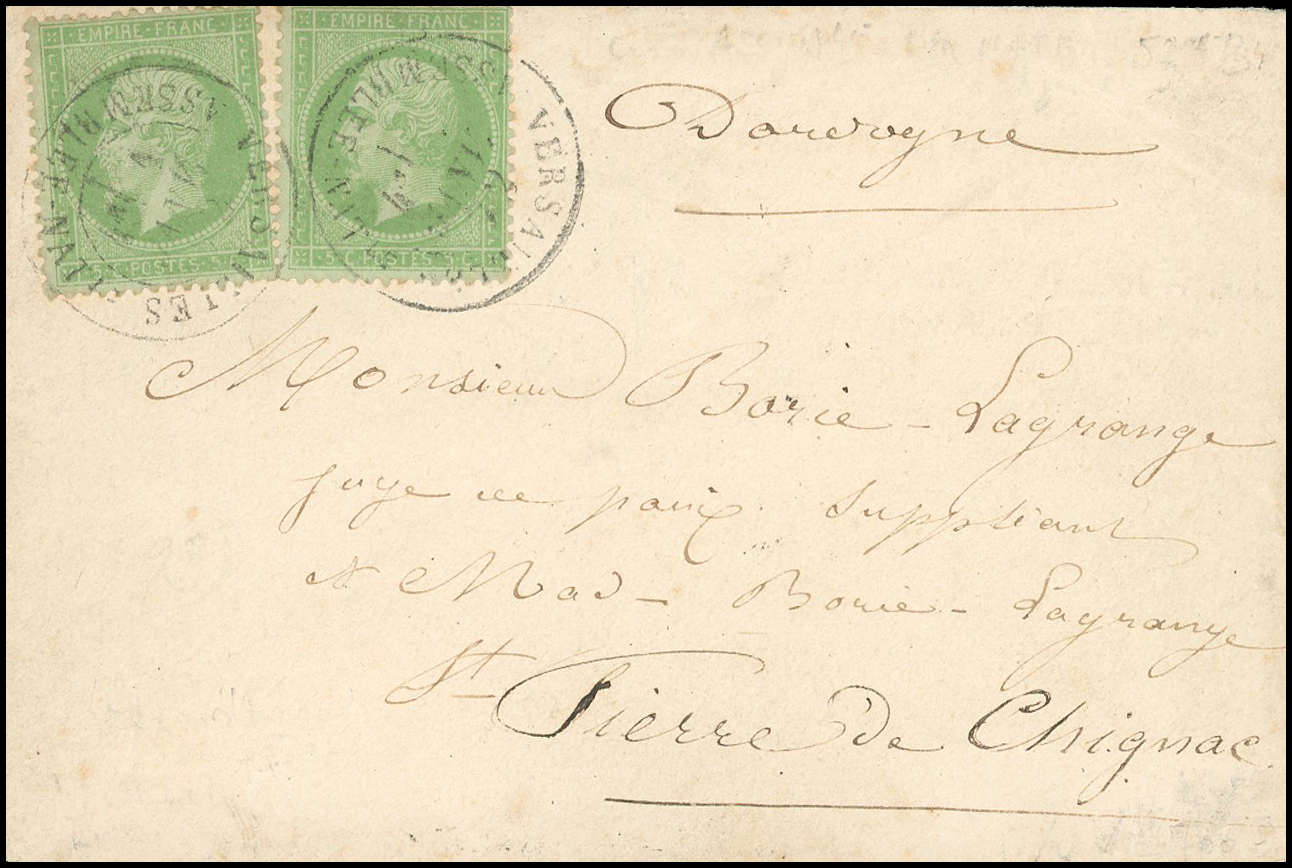 EMPIRE FRANC
EMPIRE FRANC
5 C. POSTES 5 C
5 C. POSTES 5 C
VERSAILLES
ASSEMBLÉE NAT
VERSAILLES
ASSEMBLÉE
JANV
Dordogne
Monsieur Borie - Lagrange
juge de paix Suppléant
et Mad - Borie - Lagrange
St Pierre de Chignac